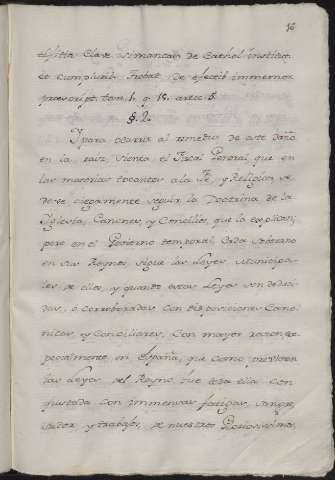 16
el sitio Clar. Simancas de Cathol. institut.
et cumplurib. Probat. de efectib. immemor.
prescript. tom. 1. q. 15. artic. 5.
§. 2.
Y para ocurrir al remedio de este daño
en la raiz, sienta el Fiscal General, que en
las materias tocantes a la Fè, y Religion, se
debe ciegamente seguir la Doctrina de la
Iglesia, Canones, y Concilios, que la explican;
pero en el Govierno temporal, Cada Soberano
en sus Reynos, sigue las Leyes Municipa-
les de ellos, y quando estas Leyes son deduci-
das, o corroboradas con disposiciones Cano-
nicas, y Conciliares, con mayor razon, es-
pecialmente en España, que como previenen
las Leyes del Reyno, fue toda ella con-
quistada con immensas fatigas, sangre,
sudor, y trabajos, de nuestros Gloriosissimos